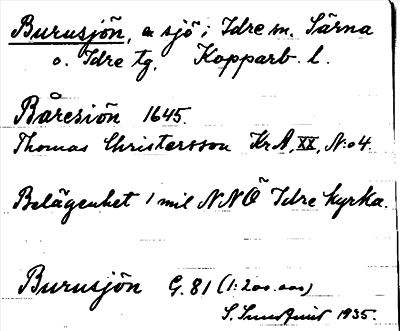 Burusjön, sjö i Idre sn. Särna
o. Idre tg. Kopparb. l.
Båresiön 1645.
Thomas Christersson KrA, XX, N:o 4.
Belägenhet 1 mil NNÖ Idre kyrka.
Burusjön G. 81 (1:200.000)
S. Sundquist 1935.